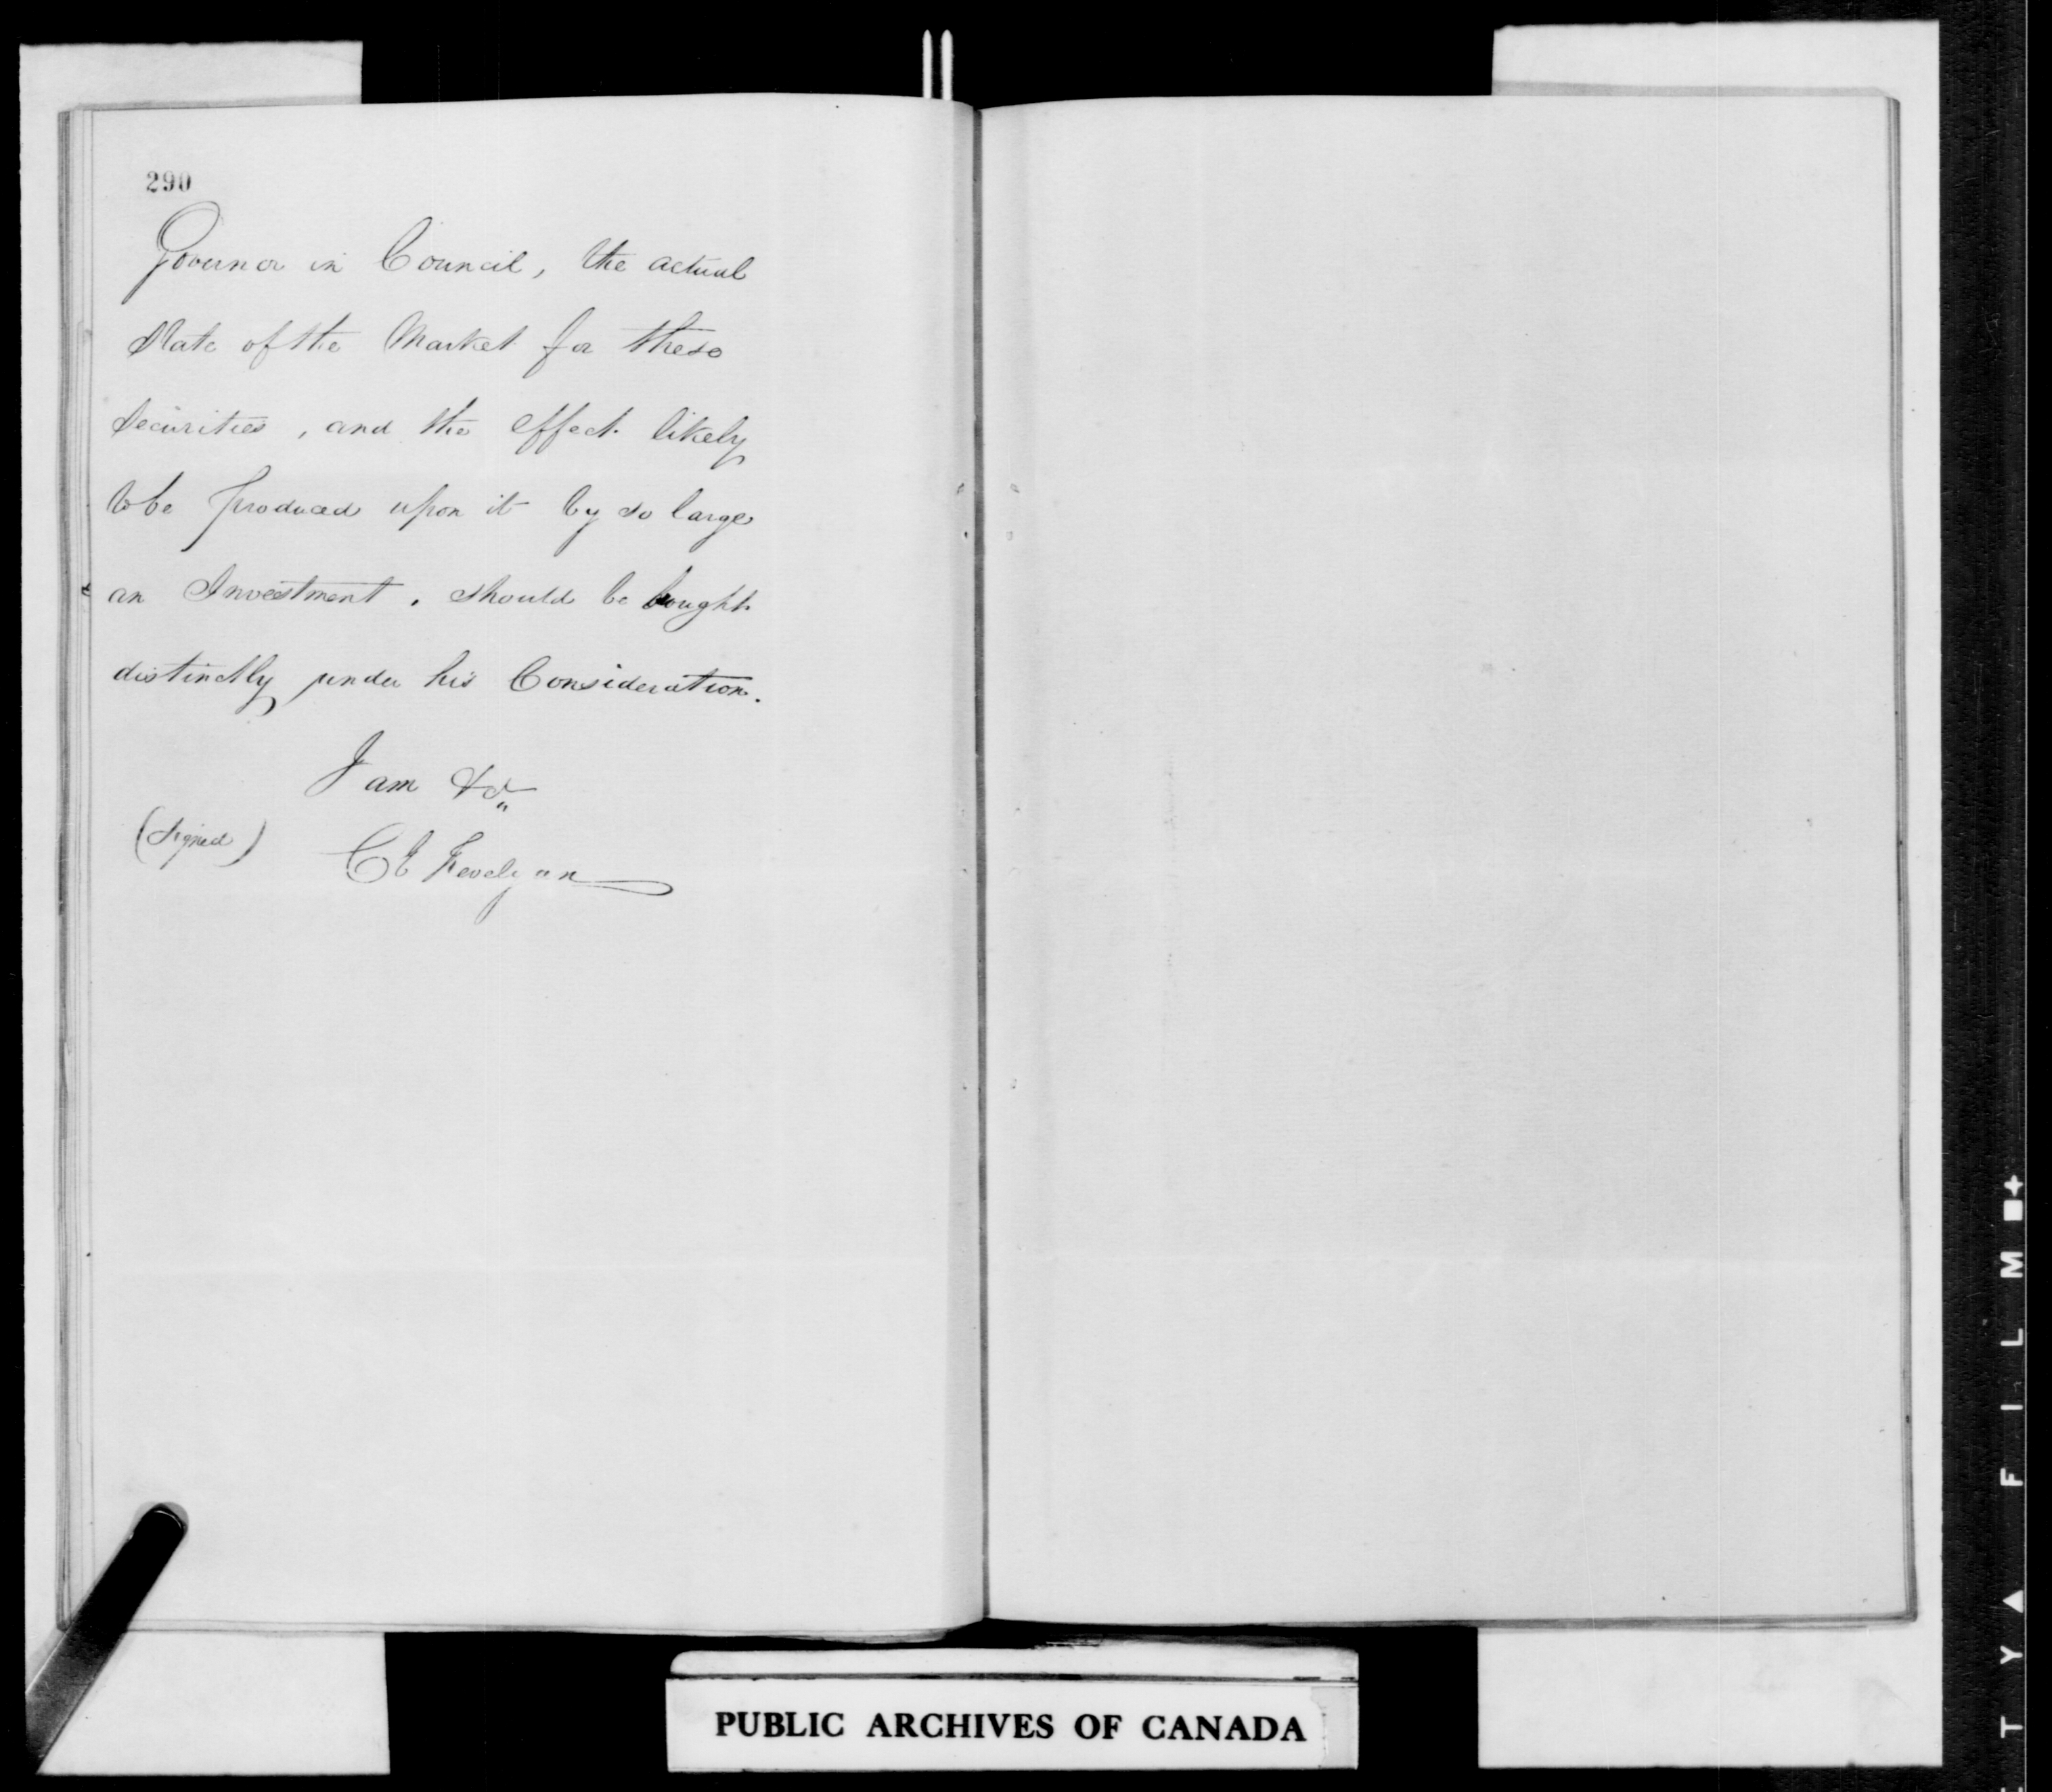 290
Governor in Council, the actual
State of the Market for these
Securities, and the effect likely
to be produced upon it by so large
an Investment, should be bought
distinctly under his Consideration.
I am &c
(Signed) C E Trevelyan
PUBLIC ARCHIVES OF CANADA
T Y ▲ F I L M ■+